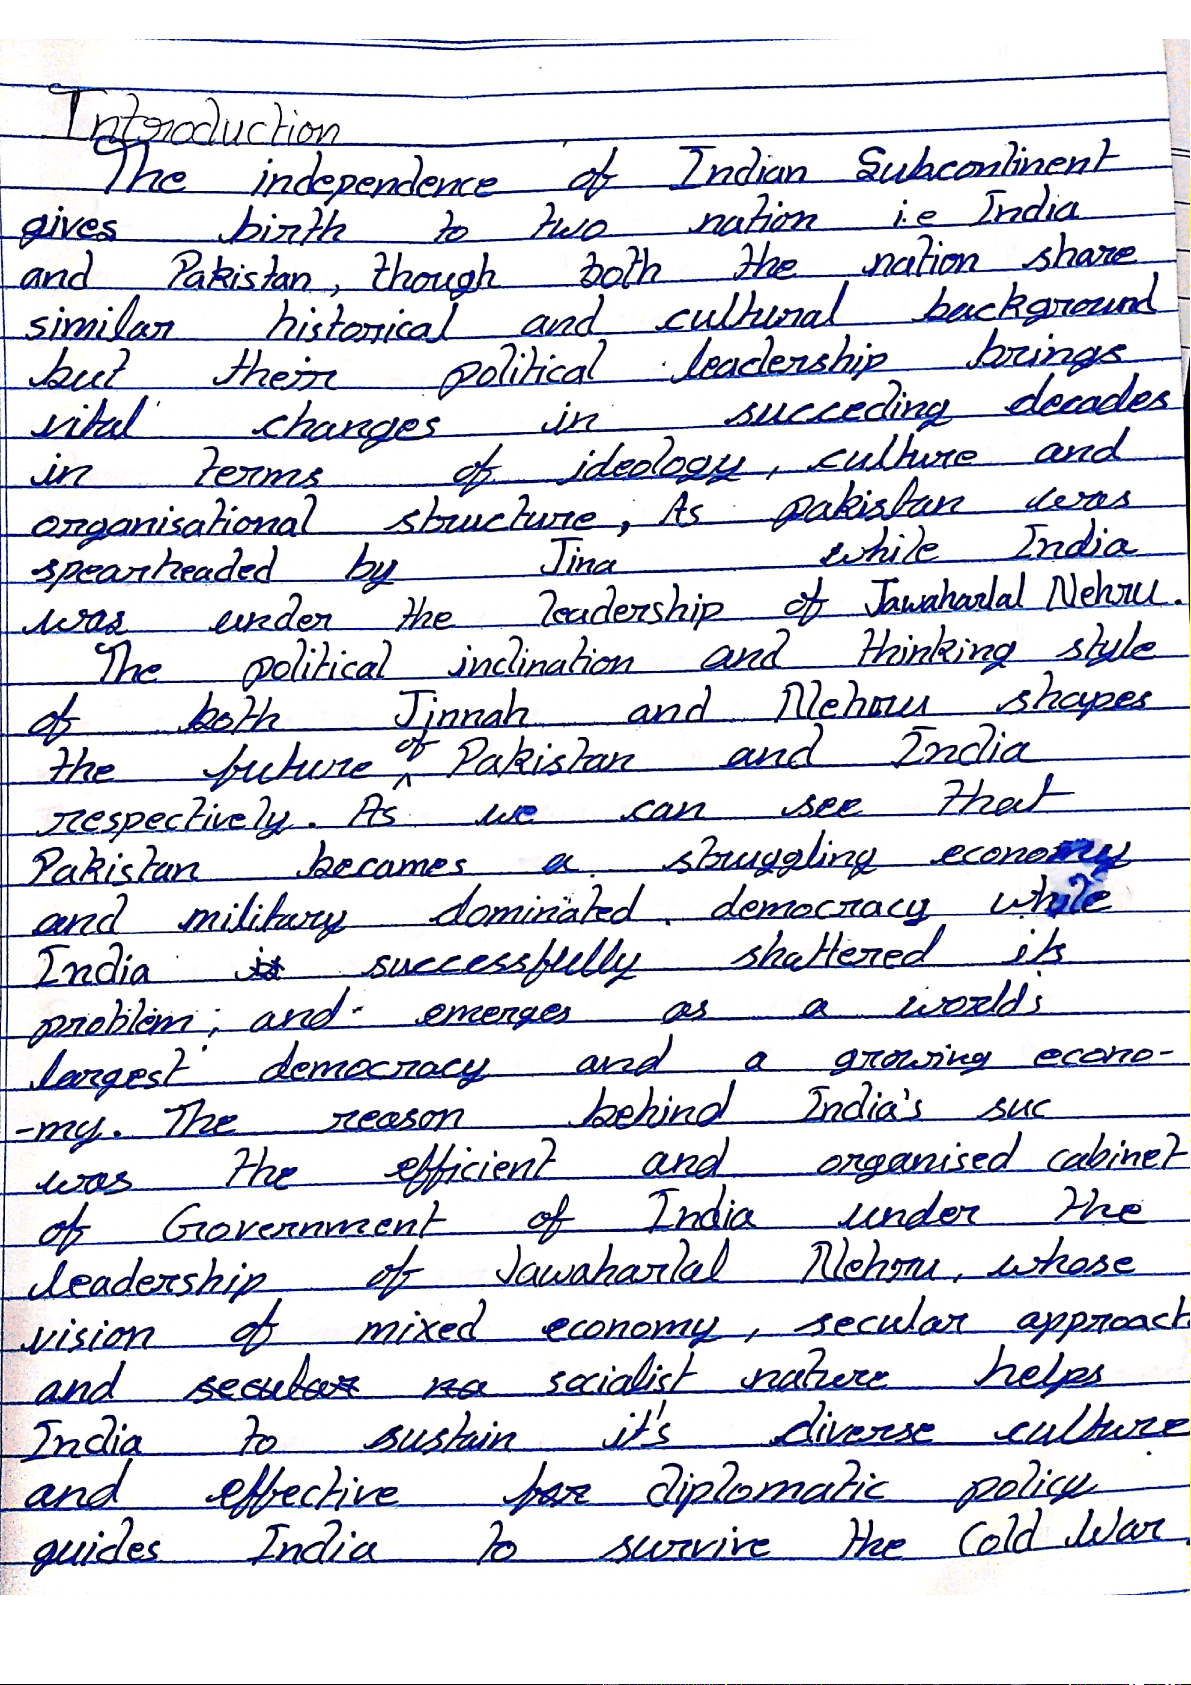 Introduction
The independence of Indian Subcontinent
gives birth to two nation i.e India
and Pakistan, though both the nation share
similar historical and cultural background
but their political leadership brings
vital changes in succeding decades
in terms of ideology, culture and
organisational structure, As pakistan was
spearheaded by Jina while India
was under the leadership of Jawaharlal Nehru.
The political inclination and thinking style
of both Jinnah and Nehru shapes
the future of Pakistan and India
respectively. As we can see that
Pakistan becames a struggling economy
and military dominated democracy while
India successfully shattered its
problem; and emerges as a world's
largest democracy and a growing econo-
-my. The reason behind India's suc
was the efficient and organised cabinet
of Government of India under the
leadership of Jawaharlal Nehru, whose
vision of mixed economy, secular approach
and secular na socialist nature helps
India to sustain it's diverse culture
and effective for diplomatic policy
guides India to survive the Cold War.